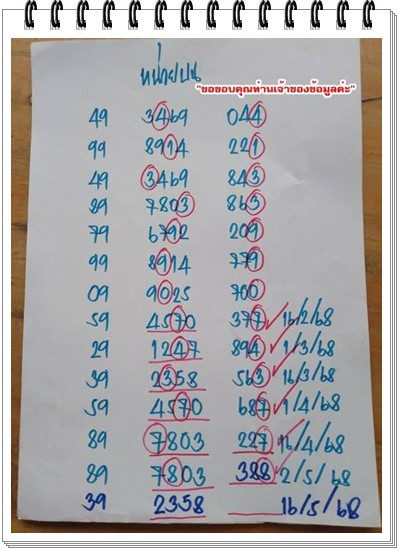 หน่วยบน
"ขอขอบคุณท่านเจ้าของข้อมูลค่ะ"
49 3469 044
99 8914 221
49 3469 843
89 7803 863
79 6792 209
99 8914 779
09 9025 700
59 4570 377 16/2/68
29 1247 894 1/3/68
39 2358 563 16/3/68
59 4570 687 1/4/68
89 7803 227 16/4/68
89 7803 388 2/5/68
39 2358 16/5/68